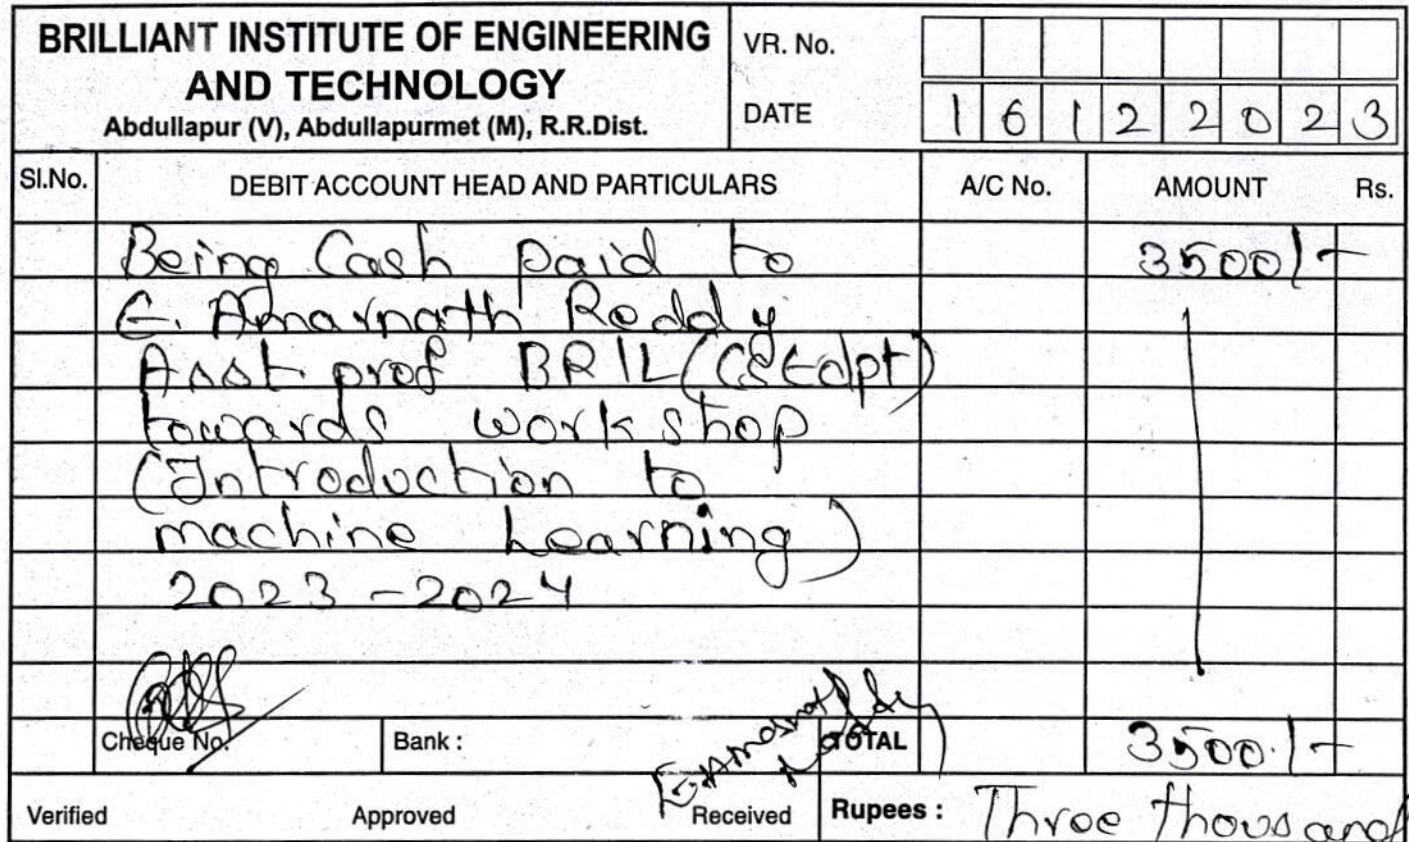 BRILLIANT INSTITUTE OF ENGINEERING
AND TECHNOLOGY
Abdullapur (V), Abdullapurmet (M), R.R.Dist.
VR. No.
DATE 16122023
Sl.No. DEBIT ACCOUNT HEAD AND PARTICULARS A/C No. AMOUNT Rs.
Being Cash paid to 3500/-
E. Amarnath Reddy
Asst. prof BRIL (CSEdpt)
towards workshop
(Introduction to
machine Learning)
2023-2024
Cheque No. Bank : TOTAL 3500/-
E. Amarnath Reddy
Verified Approved Received Rupees : Three thousand